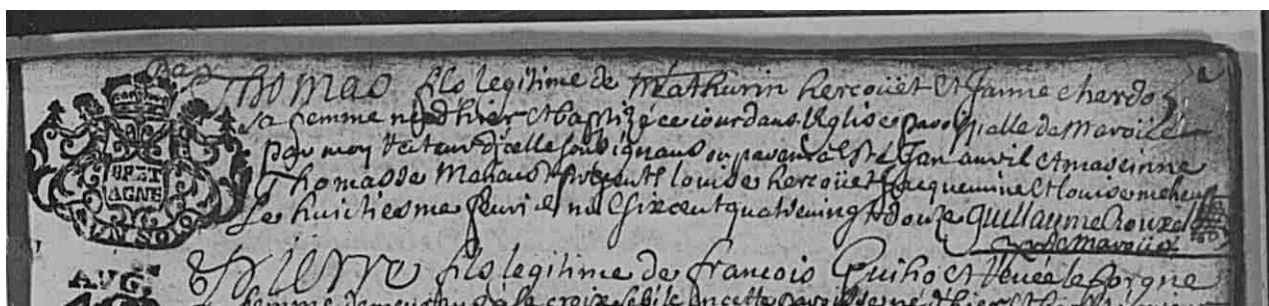 Bap
Thomas fils legitime de Mathurin hercoüet et Janne cherdo
sa femme né d'hier et baptizé ce iour dans l'Eglise paroissialle de Maroüé
par moy Recteur d'icelle soubsignant ou parain a esté Jan auril et maseinne
Thomasse Mahault presents louise hercoüet Jacquemine et louise meheust
le huictiesme feurier mil six cent quatre vingt douze Guillaume Rouxel
rr de Maroüé
BRET
AGNE
VN SOL
AVG
Pierre fils legitime de francois Guiho et Renée le borgne
sa femme demeurant à la croix en cette paroisse né d'hier et